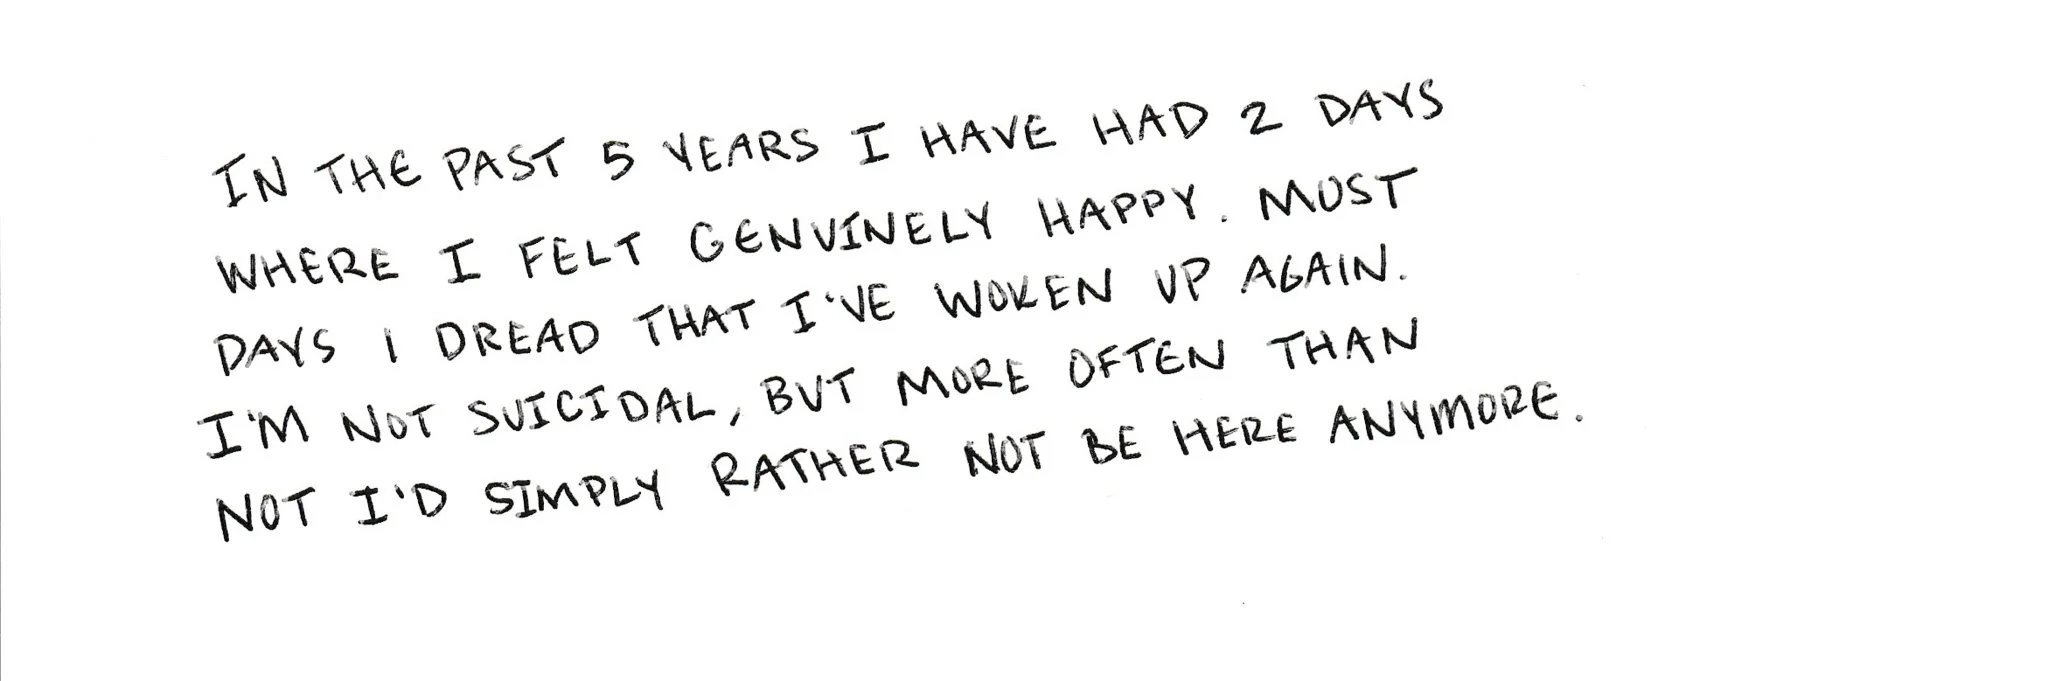 IN THE PAST 5 YEARS I HAVE HAD 2 DAYS
WHERE I FELT GENUINELY HAPPY. MOST
DAYS I DREAD THAT I'VE WOKEN UP AGAIN.
I'M NOT SUICIDAL, BUT MORE OFTEN THAN
NOT I'D SIMPLY RATHER NOT BE HERE ANYMORE.